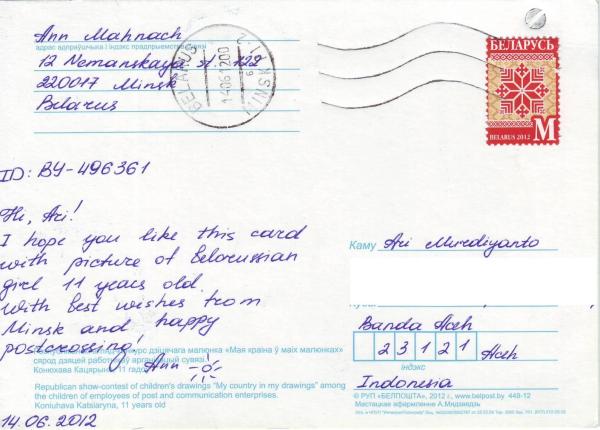 Ann Mahnach
адрас адпраўшчыка і індэкс прадпрыемства сувязі
12 Nemanskaya 122
220017 Minsk
Belarus
BELARUS
MINSK
14061200
БЕЛАРУСЬ
BELARUS 2012 M
ID: BY-496361
Hi, Ari!
I hope you like this card
with picture of belorussian
girl 11 years old.
With best wishes from
Minsk and happy
postcrossing!
Ann
конкурс дзіцячага малюнка «Мая краіна ў маіх малюнках»
сярод дзяцей работнікаў арганізацый сувязі
Конюхава Кацярына, 11 гадоў
Republican show-contest of children's drawings "My country in my drawings" among
the children of employees of post and communication enterprises.
Koniuhava Katsiaryna, 11 years old
14.06.2012
Каму Ari Murdiyanto
Banda Aceh
23121 Aceh
індэкс
Indonesia
© РУП «БЕЛПОШТА», 2012 г., www.belpost.by 448-12
Мастацкае афармленне А.Мядзведзь